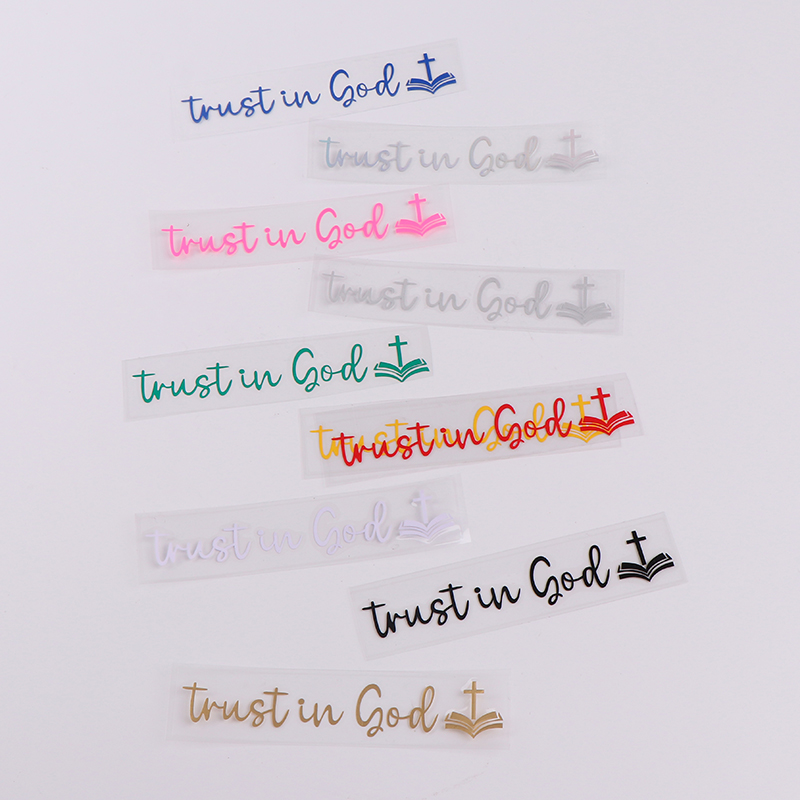 trust in God
trust in God
trust in God
trust in God
trust in God
trust in God
trust in God
trust in God
trust in God
trust in God